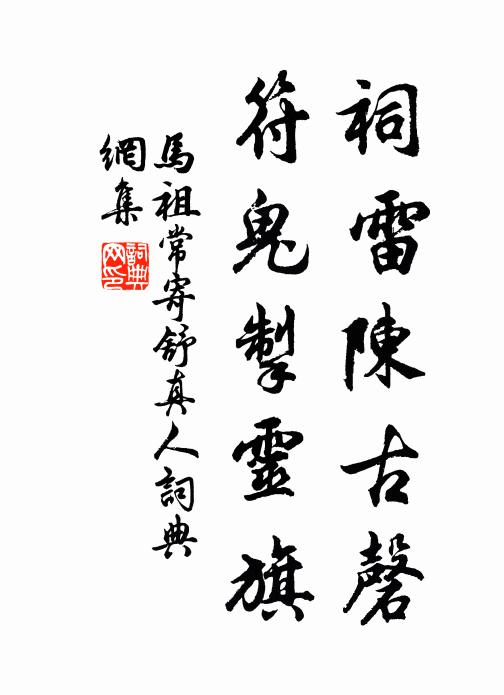 祠雷陳古磬
符鬼掣靈旗
馬祖常寄舒真人詞典
網集
詞典
网印